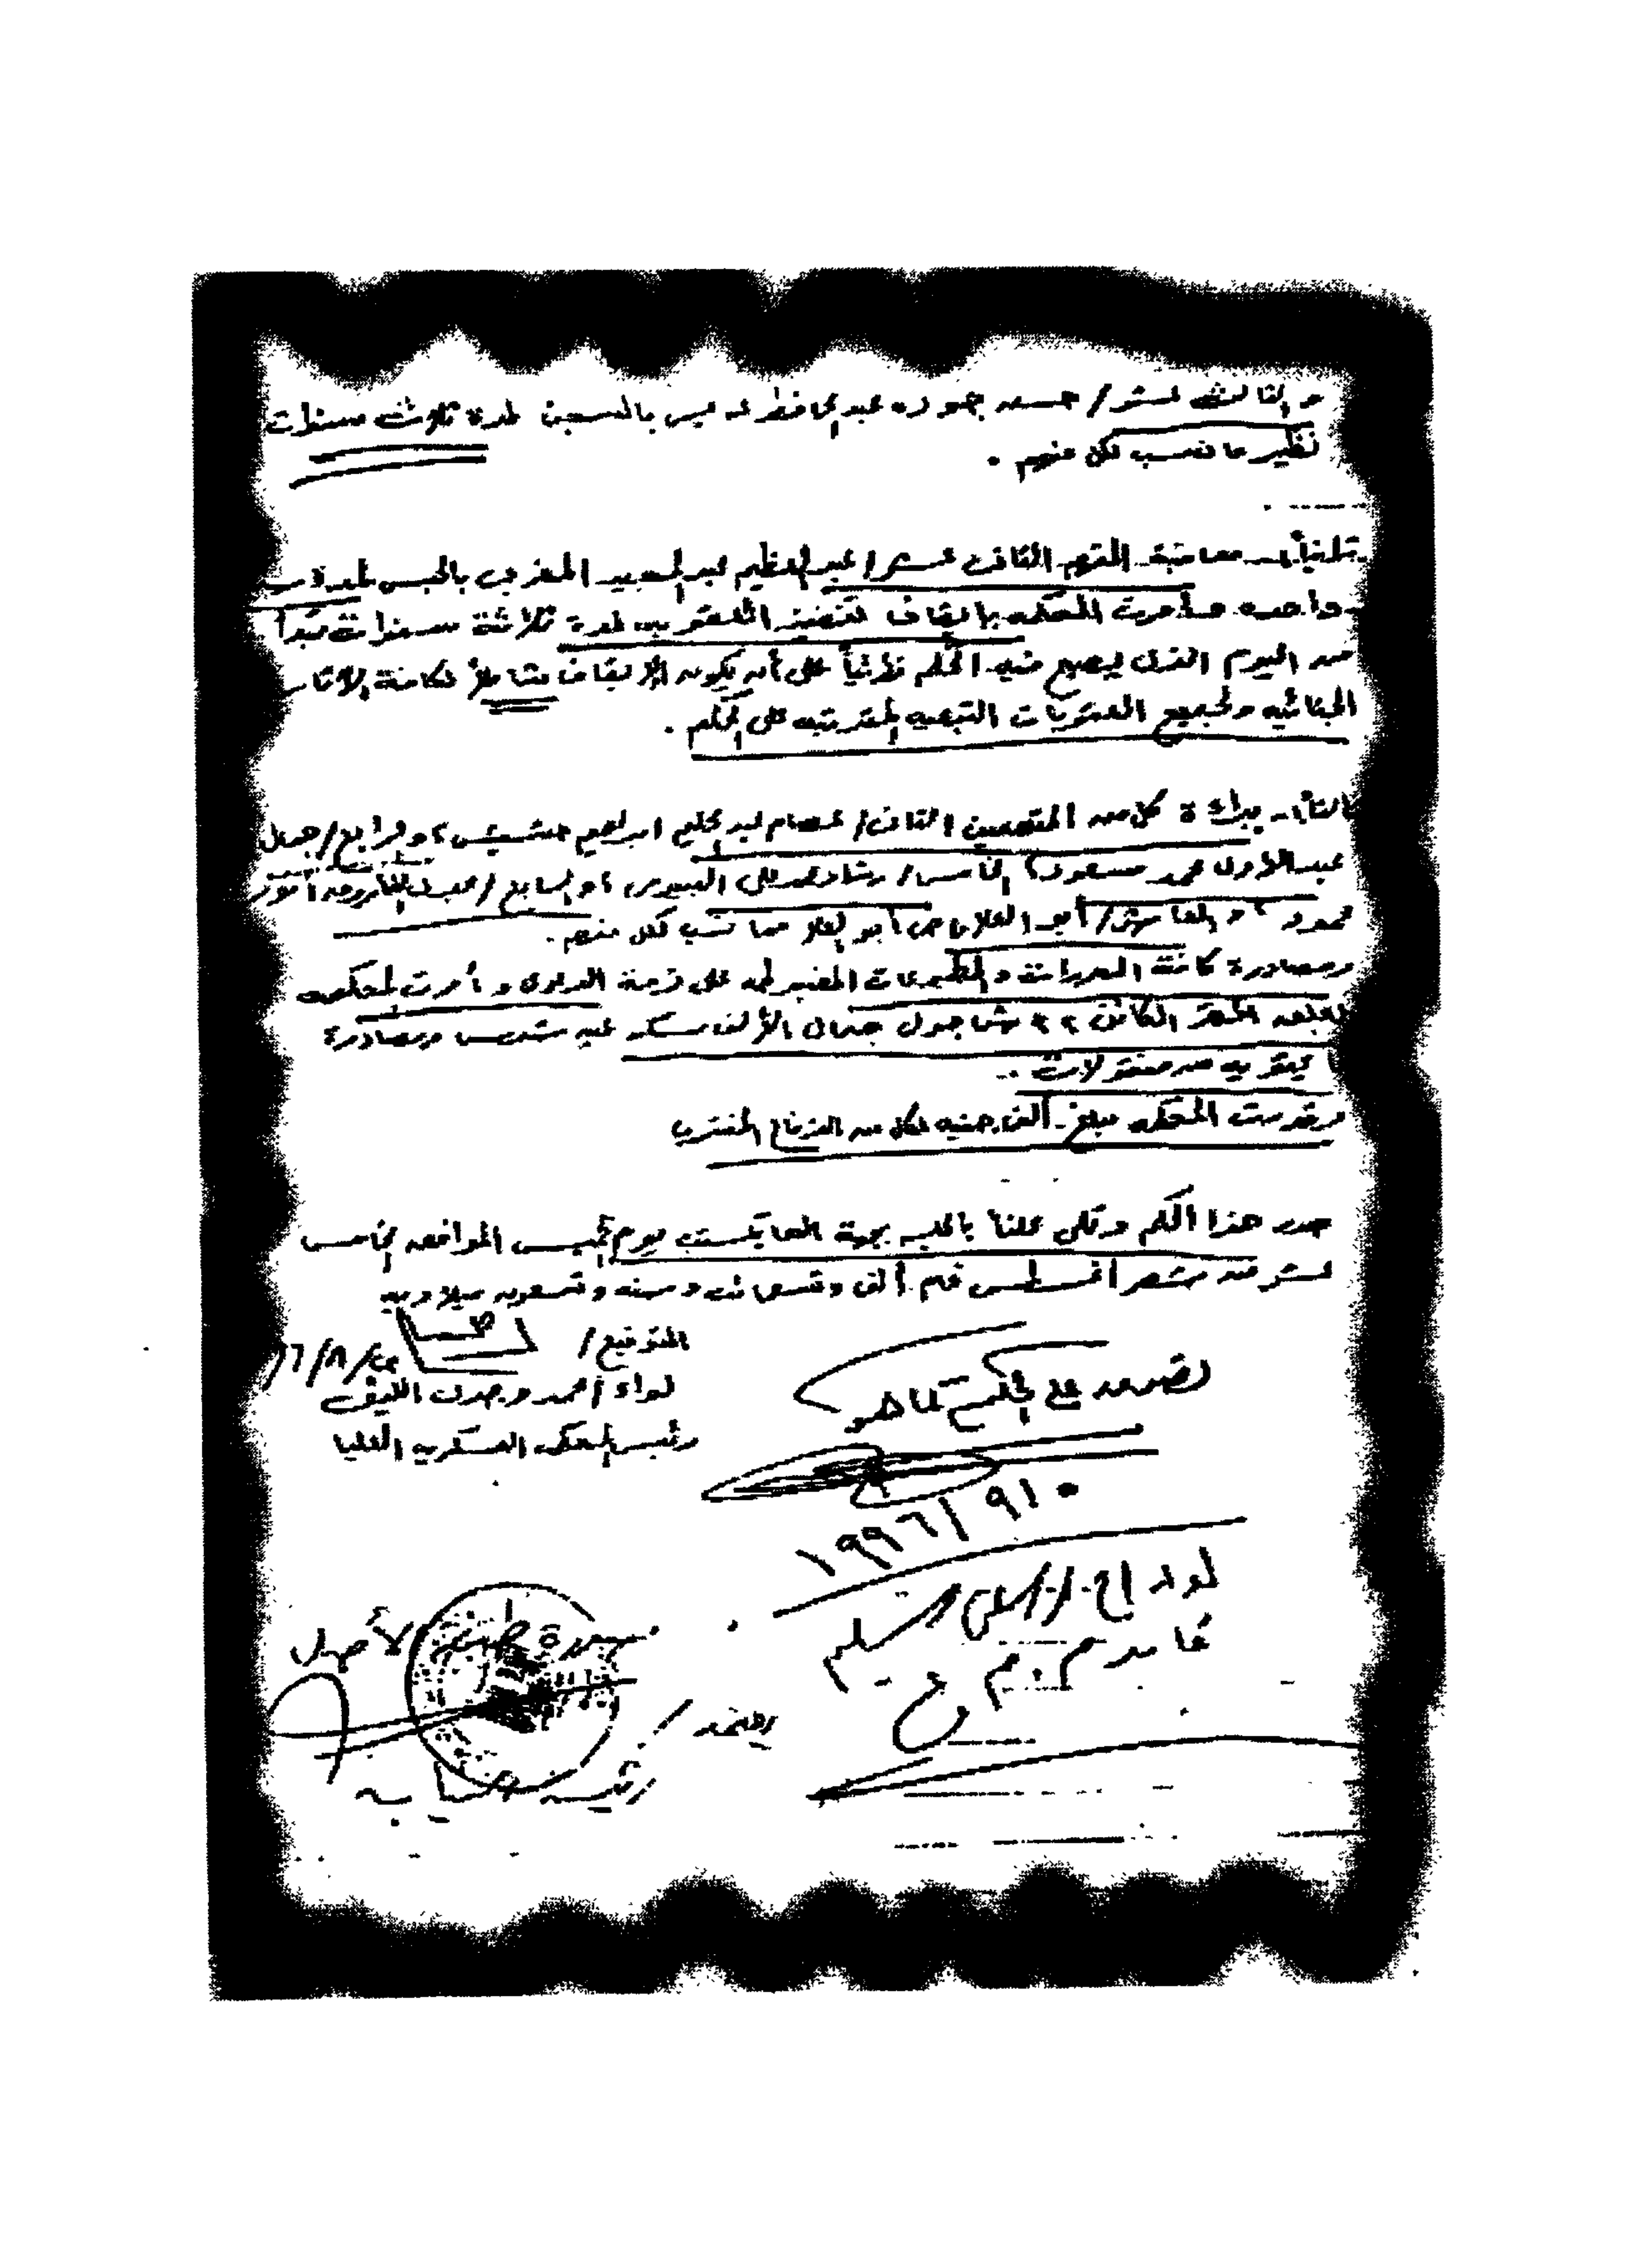 والثالث عشر / حسن جوده عبد الحافظ بالسجن لمدة ثلاث سنوات
نظير ما نسب لكل منهم .
ثانياً - معاقبة المتهم الثانى عشر / عبد العظيم عبد المجيد المغربى بالحبس لمدة
واحده وأمرت المحكمه بإيقاف تنفيذ العقوبه لمدة ثلاثة سنوات تبدأ
من اليوم الذى يصبح فيه الحكم نهائياً على أن يكون الإيقاف شاملاً لكافة الآثار
الجنائيه ولجميع العقوبات التبعيه المترتبه على الحكم .
ثالثاً - ببراءة كل من المتهمين الثانى / عصام عبد الحليم ابراهيم حشيش ، والرابع / جمال
عبد الأول محمد مسعود ، الخامس / رشاد محمد على البيومى ، والسابع / عبد
محمود ، والعاشر / أبو العلا ماضى أبو العلا مما نسب لكل منهم .
ومصادرة كافة المحررات والمطبوعات المضبوطه على ذمة الدعوى وأمرت المحكمه
المقر الكائن ٢٢ ش جول جمال الألف مسكن عين شمس ومصادرة
به من منقولات .
وقدرت المحكمه مبلغ ألف جنيه لكل من الدفاع المنتدب
صدر هذا الحكم وتلى علنا بالجلسه بجهة الهايكستب يوم الخميس الموافق الخامس
عشر من شهر أغسطس عام ألف وتسعمائه وسته وتسعون ميلاديه
التوقيع /
لواء / أحمد وجدى الليثى
رئيس المحكمه العسكريه العليا
نصدق على الحكم كما هو
١٩٩٦/٩/٠
لواء أ ح /
صورة طبق الأصل
يعتمد /
رئيس النيابه